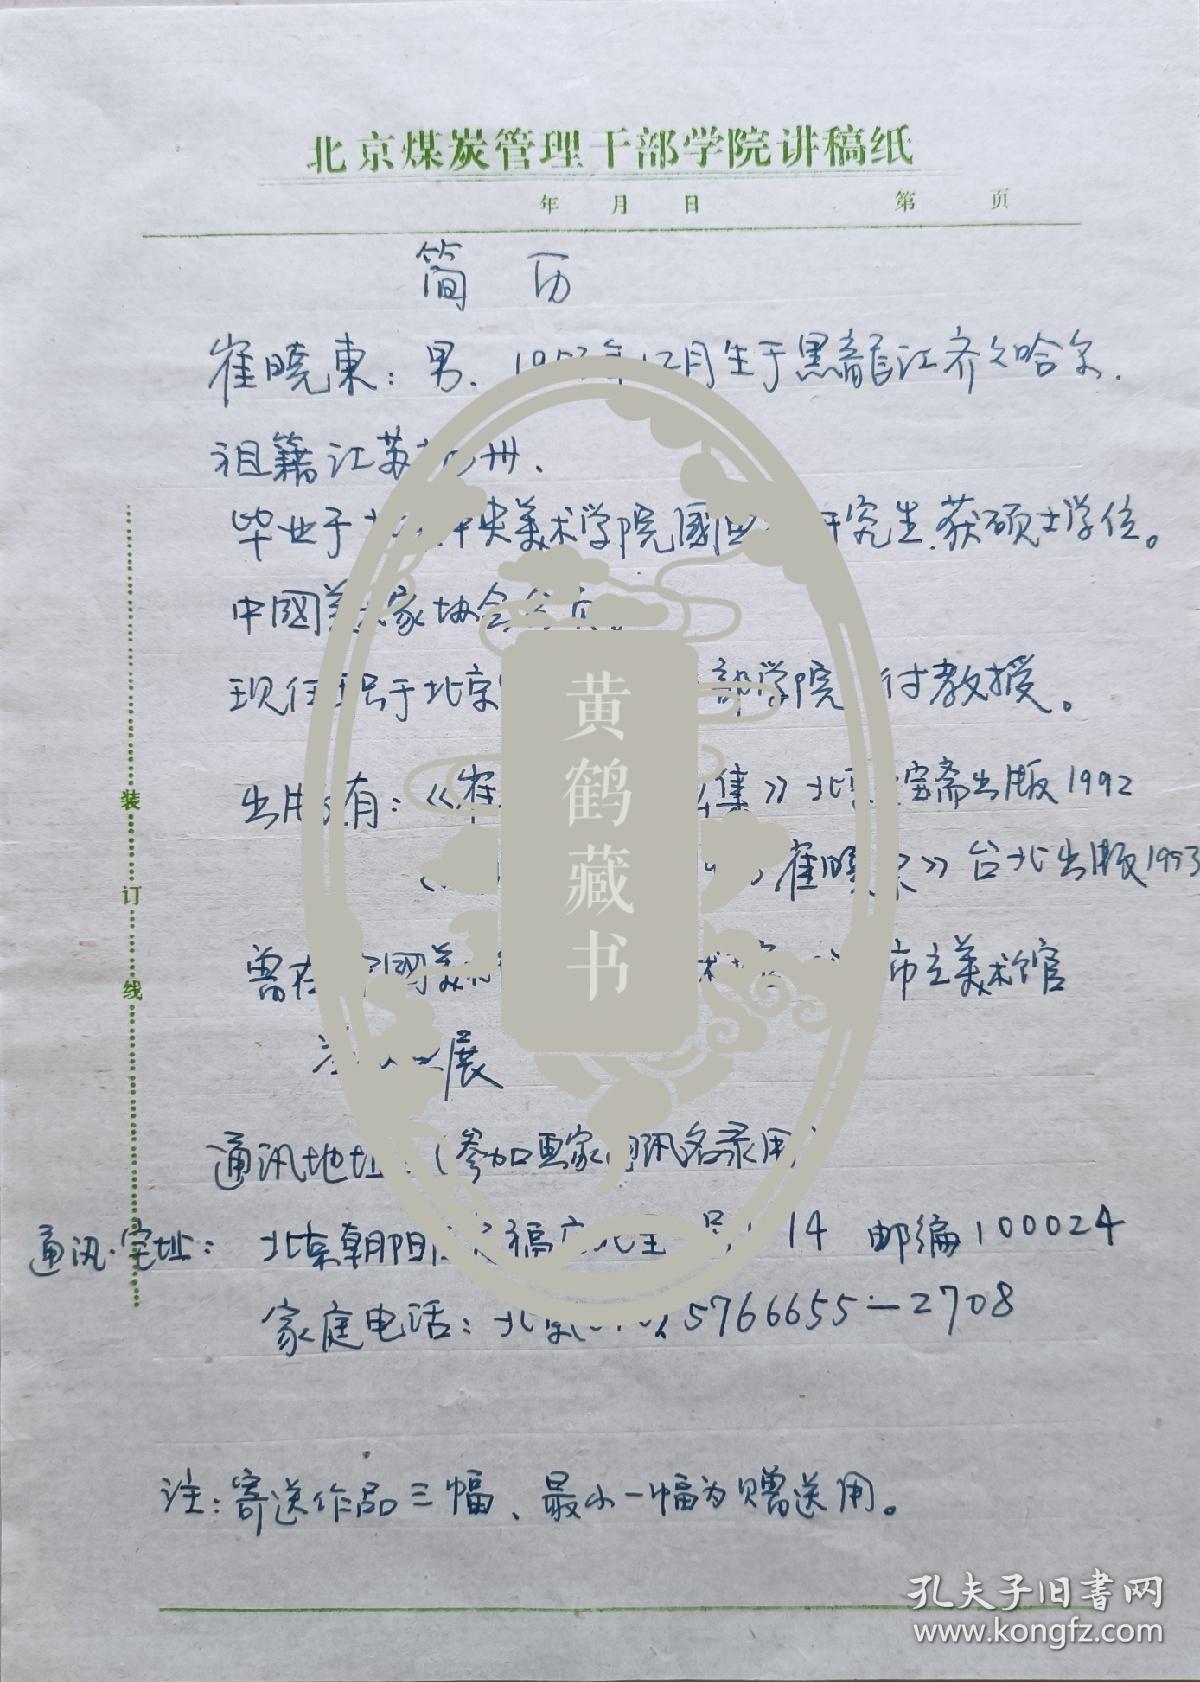 北京煤炭管理干部学院讲稿纸
年 月 日 第 页
简 历
崔曉東：男、19 年12月生于黑龍江齐 哈尔.
祖籍江苏 州、
毕业于 中央美术学院國画 研究生.获硕士学位。
中國美 家协会会员。
现任 于北京 部学院 付教授。
出版有：《崔 集》北京 宝斋出版1992
《 崔曉東》台北出版1993
曾在中國美术 术 市立美术馆
展
通讯地址 （参加画家通讯名录用）
通讯.宅址：北京朝阳 福 北里 号 14 邮编100024
家庭电话：北京 5766655-2708
注：寄送作品三幅、最小一幅为赠送用。
装
订
线
黄鹤藏书
孔夫子旧书网
www.kongfz.com